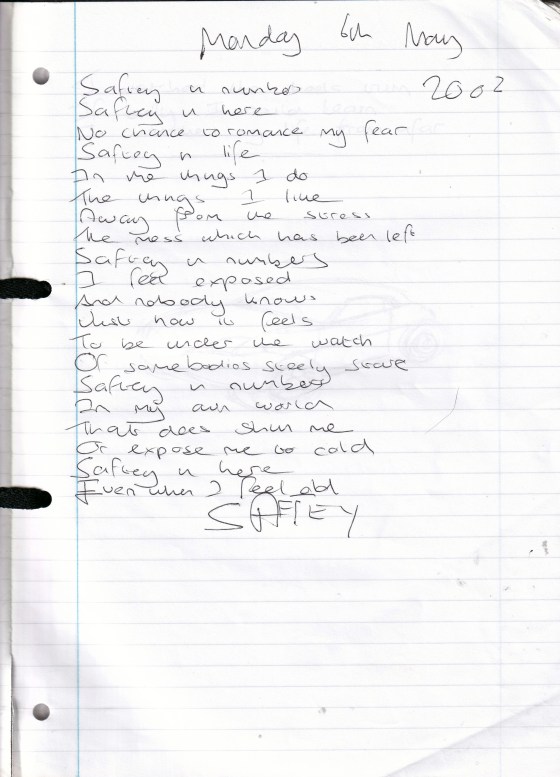 Monday 6th May
2002
Saftey in numbers
Saftey in here
No chance to romance my fear
Saftey in life
In the things I do
The things I like
Away from the stress
The mess which has been left
Saftey in numbers
I feel exposed
And nobody knows
Just how it feels
To be under the watch
Of somebodios steely stare
Saftey in numbers
In my own world
That does shun me
Or expose me to cold
Saftey in here
Even when I feel old
SAFTEY